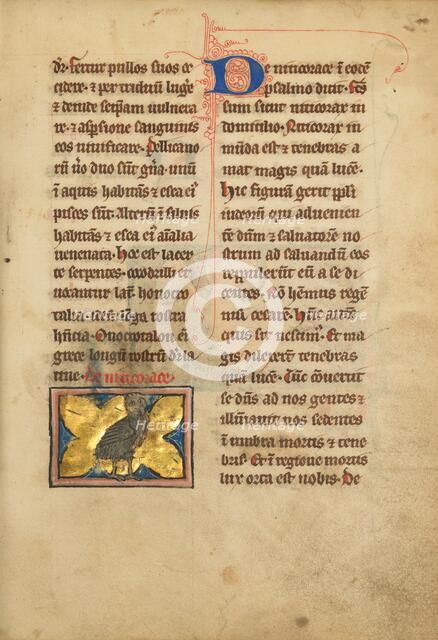 dr̄. Fertur pullos suos oc
cidere. ⁊ per triduum luge
re. ⁊ deinde seipsam vulnera
re. ⁊ aspsione sanguinis
eos vivificare. Pellicano
rū vo duo sunt gn̄a. unū
in aquis habitans ⁊ esca eiꝰ
pisces sūt. Alterum ī silvis
habitans ⁊ esca eiꝰ aīalia
venenata. hoc est lacer
te serpentes. cocodrilli et
vocantur lat̄. honocro
talia. sunt longa rostra
hn̄cia. Onocrotalon enī
grece longum rostrum dr̄ la
tine. De niticorace
De niticorace ī eodē
psalmo dicit. Fc̄s
sum sicut niticorax in
domicilio. Niticorax in
mūda est ⁊ tenebras a
mat magis quā lucē.
hic figuram gerit ppl̄i
iudeorū qui advenien
te dn̄m ⁊ salvatorē no
strum ad salvandū eos
reppulerūt eū a se di
centes. Nō hēmus regē
nisi cesarē. hūc autē
quis sit nescimꝰ. Et ma
gis dilexerūt tenebras
quā lucē. Tūc cōvertit
se dn̄s ad nos gentes ⁊
illuīavit nos sedentes
ī umbra mortis ⁊ tene
bris. Et ī regione mortis
lux orta est nobis. De
Heritage
Heritage
Heritage
Heritage
Heritage